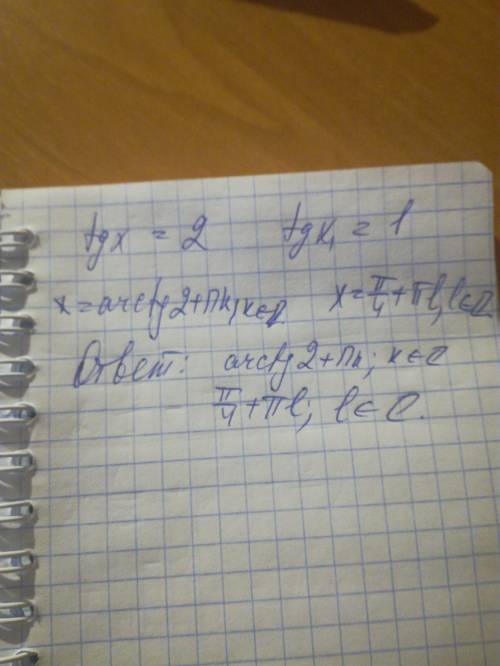 tgx = 2 tgx₁ = 1
x = arctg2+πk, k∈Z x = π/4 + πl, l∈Z
Ответ: arctg2+πk; k∈Z
π/4 + πl; l∈Z.